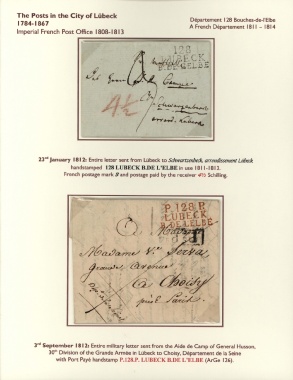 The Posts in the City of Lübeck
1784-1867
Imperial French Post Office 1808-1813
Département 128 Bouches-de-l'Elbe
A French Département 1811 – 1814
128
LUBECK
B.DE L'ELBE
4½
22nd January 1812: Entire letter sent from Lübeck to Schwartzenbeck, arrondissement Lübeck
handstamped 128 LUBECK B.DE L'ELBE in use 1811-1812.
French postage mark B and postage paid by the receiver 4½ Schilling.
P.128.P.
LUBECK
B.DE L'ELBE
A Madame
Madame Ve Serva
Grande Avenue
à Choisy
près Paris
3rd September 1812: Entire military letter sent from the Aide de Camp of General Husson,
30th Division of the Grande Armée in Lübeck to Choisy, Département de la Seine
with Port Payé handstamp P.128.P. LUBECK B.DE L'ELBE (ArGe 126).